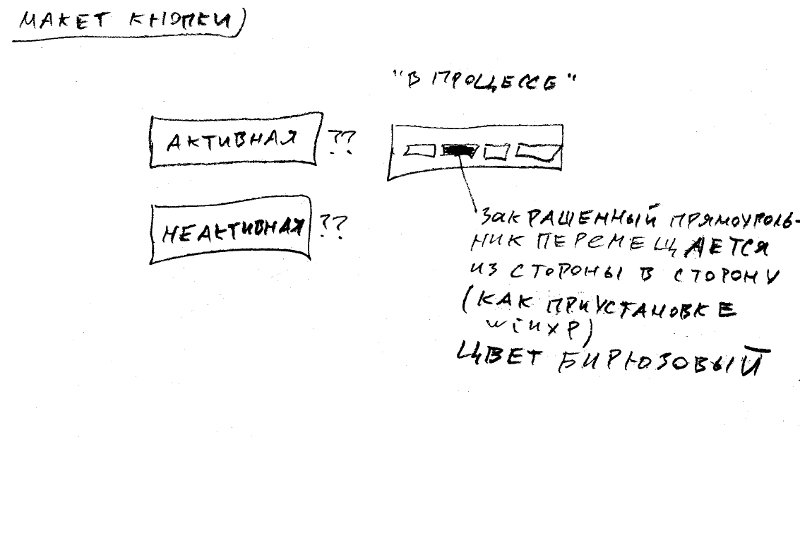 МАКЕТ КНОПКИ)
"В ПРОЦЕССЕ"
АКТИВНАЯ ??
НЕАКТИВНАЯ ??
ЗАКРАШЕННЫЙ ПРЯМОУГОЛЬ-
НИК ПЕРЕМЕЩАЕТСЯ
ИЗ СТОРОНЫ В СТОРОНУ
(КАК ПРИ УСТАНОВКЕ
WINXP)
ЦВЕТ БИРЮЗОВЫЙ